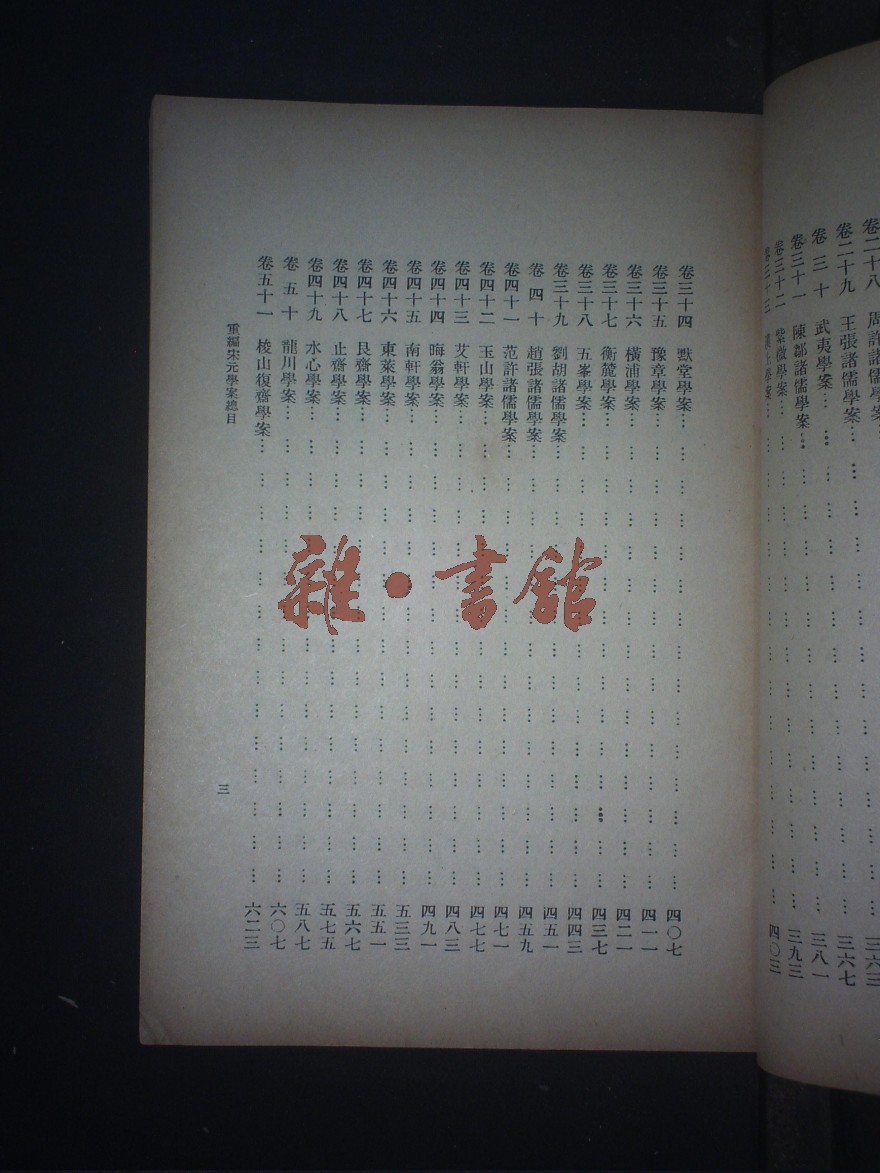 卷二十八 周許諸儒學案… 三六三
卷二十九 王張諸儒學案… 三六七
卷三十 武夷學案… 三八一
卷三十一 陳鄒諸儒學案… 三九三
卷三十二 紫微學案… 四〇三
卷三十三 學案…
卷三十四 默堂學案… 四〇七
卷三十五 豫章學案… 四一一
卷三十六 橫浦學案… 四二一
卷三十七 衡麓學案… 四三七
卷三十八 五峯學案… 四四三
卷三十九 劉胡諸儒學案… 四五一
卷四十 趙張諸儒學案… 四五九
卷四十一 范許諸儒學案… 四七一
卷四十二 玉山學案… 四七七
卷四十三 艾軒學案… 四八三
卷四十四 晦翁學案… 四九一
卷四十五 南軒學案… 五三三
卷四十六 東萊學案… 五五一
卷四十七 艮齋學案… 五六七
卷四十八 止齋學案… 五七五
卷四十九 水心學案… 五八七
卷五十 龍川學案… 六〇七
卷五十一 梭山復齋學案… 六二三
重編宋元學案總目
三
雜·書館